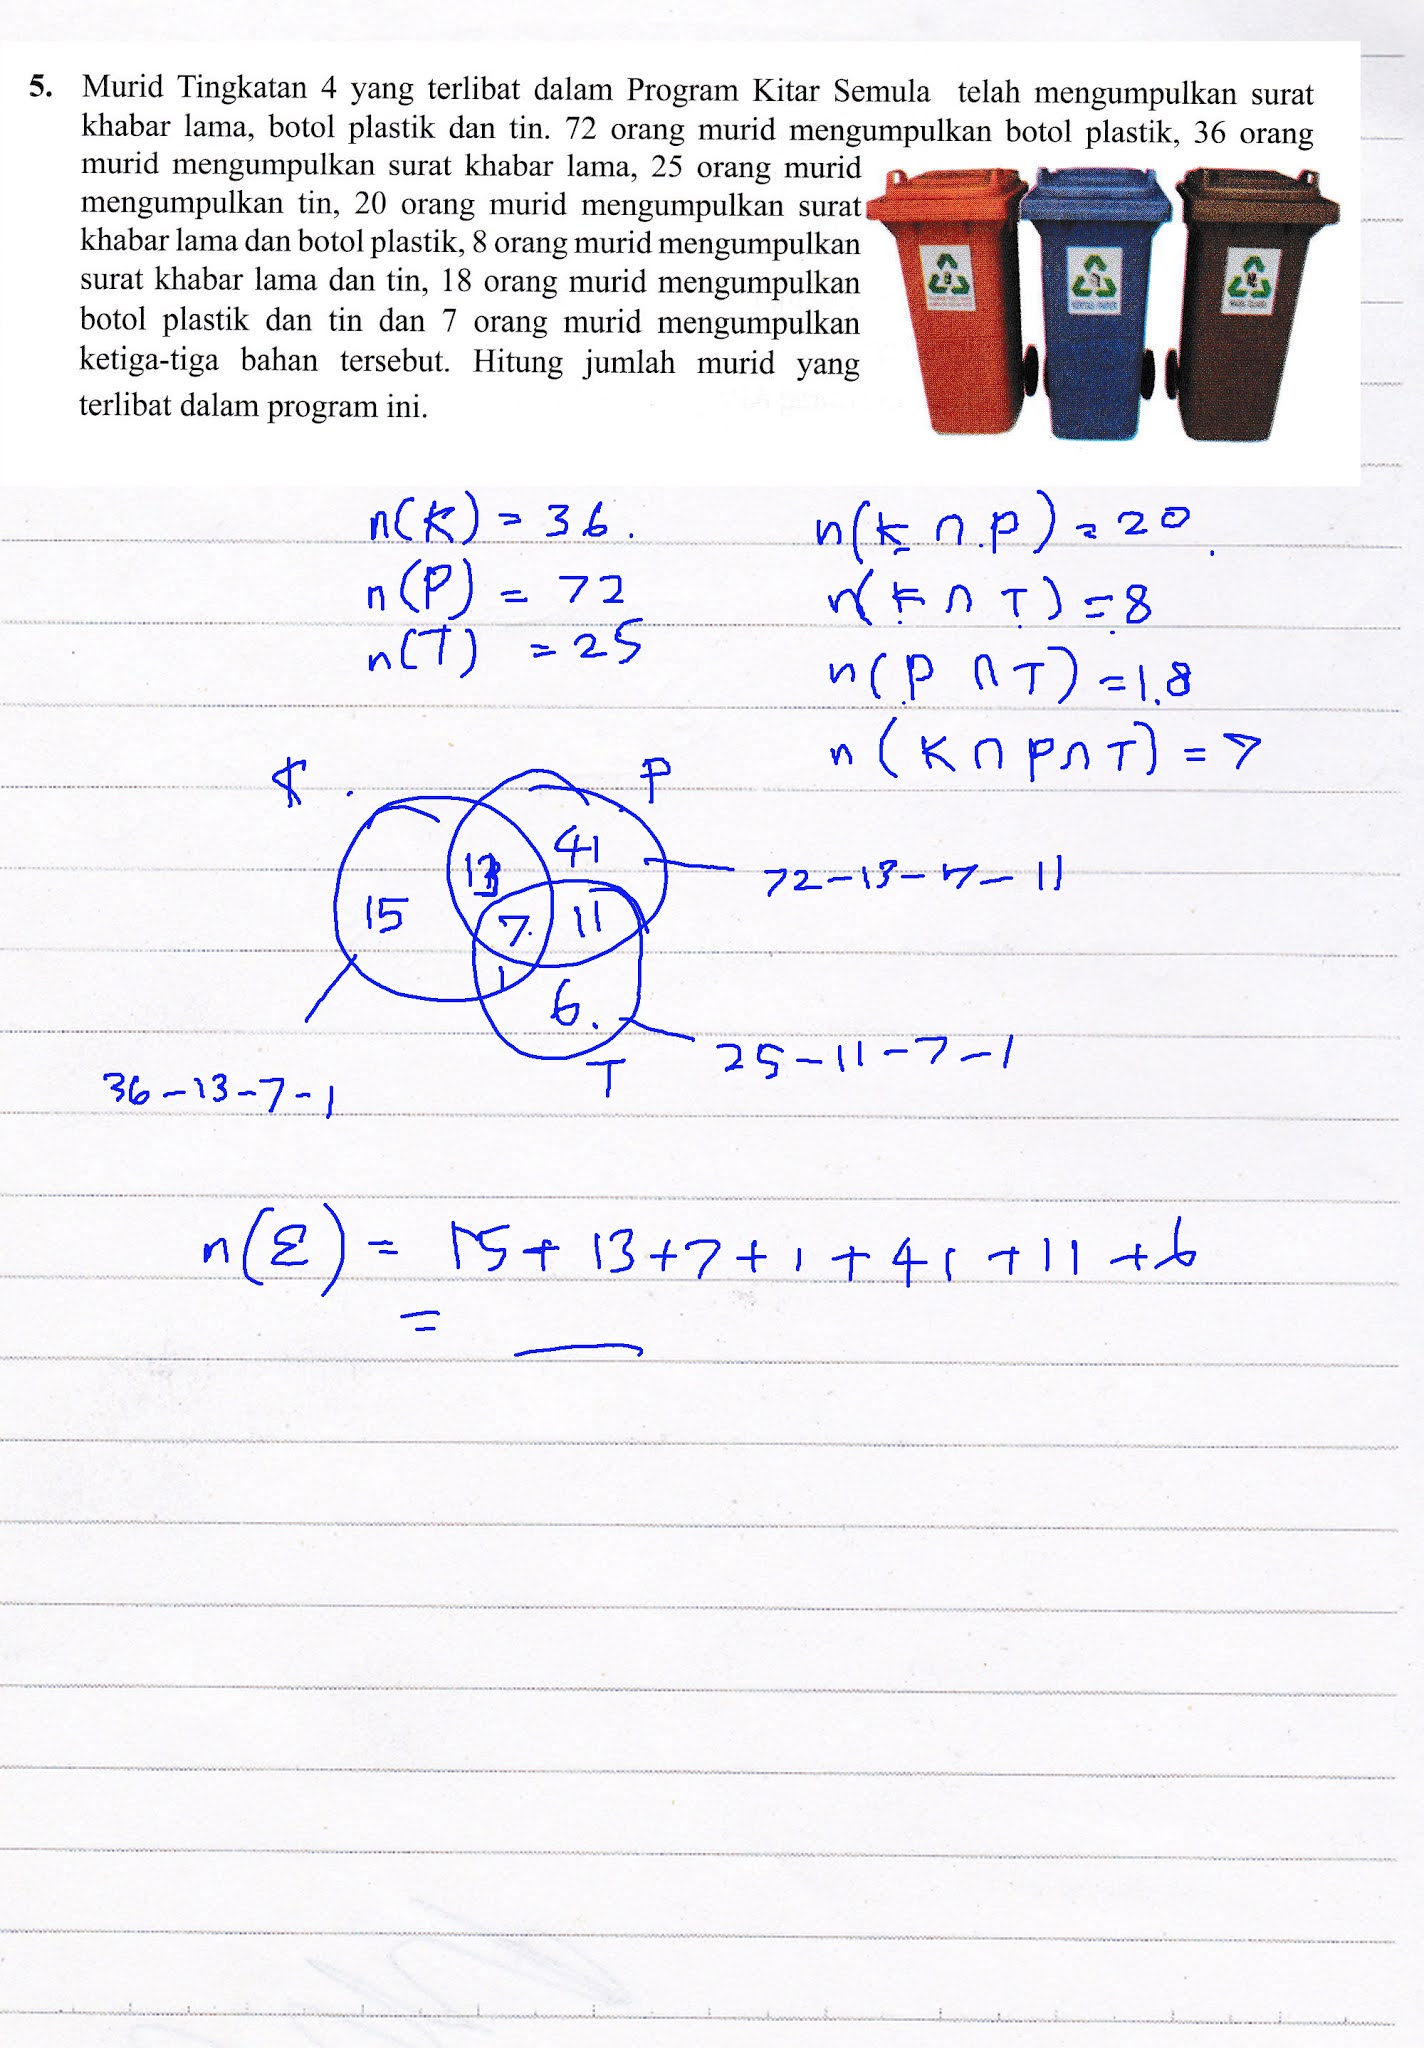 5. Murid Tingkatan 4 yang terlibat dalam Program Kitar Semula telah mengumpulkan surat
khabar lama, botol plastik dan tin. 72 orang murid mengumpulkan botol plastik, 36 orang
murid mengumpulkan surat khabar lama, 25 orang murid
mengumpulkan tin, 20 orang murid mengumpulkan surat
khabar lama dan botol plastik, 8 orang murid mengumpulkan
surat khabar lama dan tin, 18 orang murid mengumpulkan
botol plastik dan tin dan 7 orang murid mengumpulkan
ketiga-tiga bahan tersebut. Hitung jumlah murid yang
terlibat dalam program ini.
n(K) = 36.
n(P) = 72
n(T) = 25
n(K ∩ P) = 20
n(K ∩ T) = 8
n(P ∩ T) = 18
n(K ∩ P ∩ T) = 7
K
P
41
13
15
7
11
1
6
T
72-13-7-11
25-11-7-1
36-13-7-1
n(ξ) = 15 + 13 + 7 + 1 + 41 + 11 + 6
=